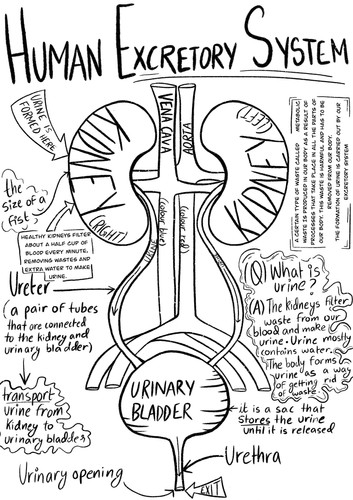 HUMAN EXCRETORY SYSTEM
URINE IS
FORMED HERE
KIDNEY
(RIGHT)
VENA CAVA
AORTA
(LEFT)
KIDNEY
A CERTAIN TYPE OF WASTE CALLED METABOLIC
WASTE IS PRODUCED IN OUR BODY AS A RESULT OF
PROCESSES THAT TAKE PLACE IN ALL THE PARTS OF
OUR BODY. THIS WASTE IS HARMFUL AND HAS TO BE
REMOVED FROM OUR BODY.
THE FORMATION OF URINE IS CARRIED OUT BY OUR
EXCRETORY SYSTEM
the
size of a
fist
HEALTHY KIDNEYS FILTER
ABOUT A HALF CUP OF
BLOOD EVERY MINUTE,
REMOVING WASTES AND
EXTRA WATER TO MAKE
URINE.
(colour blue)
(colour red)
Ureter
(a pair of tubes
that are connected
to the kidney and
urinary bladder)
transport
urine from
kidney to
urinary bladder
(Q) What is
urine?
(A) The kidneys filter
waste from our
blood and make
urine. Urine mostly
contains water.
The body forms
urine as a way
of getting rid
of waste.
URINARY
BLADDER
it is a sac that
stores the urine
until it is released
Urethra
Urinary opening
EXIT